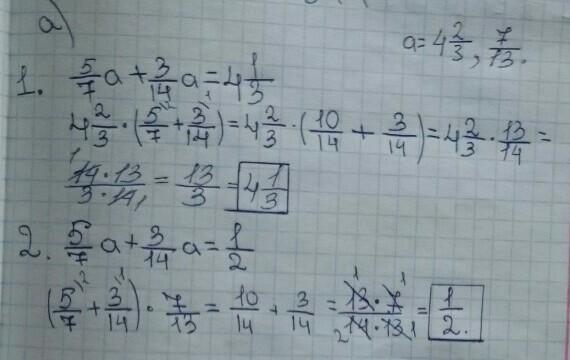 a)
a=4 2/3, 7/13.
1. 5/7 a + 3/14 a = 4 1/3
4 2/3 · (5/7 + 3/14) = 4 2/3 · (10/14 + 3/14) = 4 2/3 · 13/14 =
14·13/3·14 = 13/3 = 4 1/3
2. 5/7 a + 3/14 a = 1/2
(5/7 + 3/14) · 7/13 = 10/14 + 3/14 = 13·7/14·13 = 1/2.